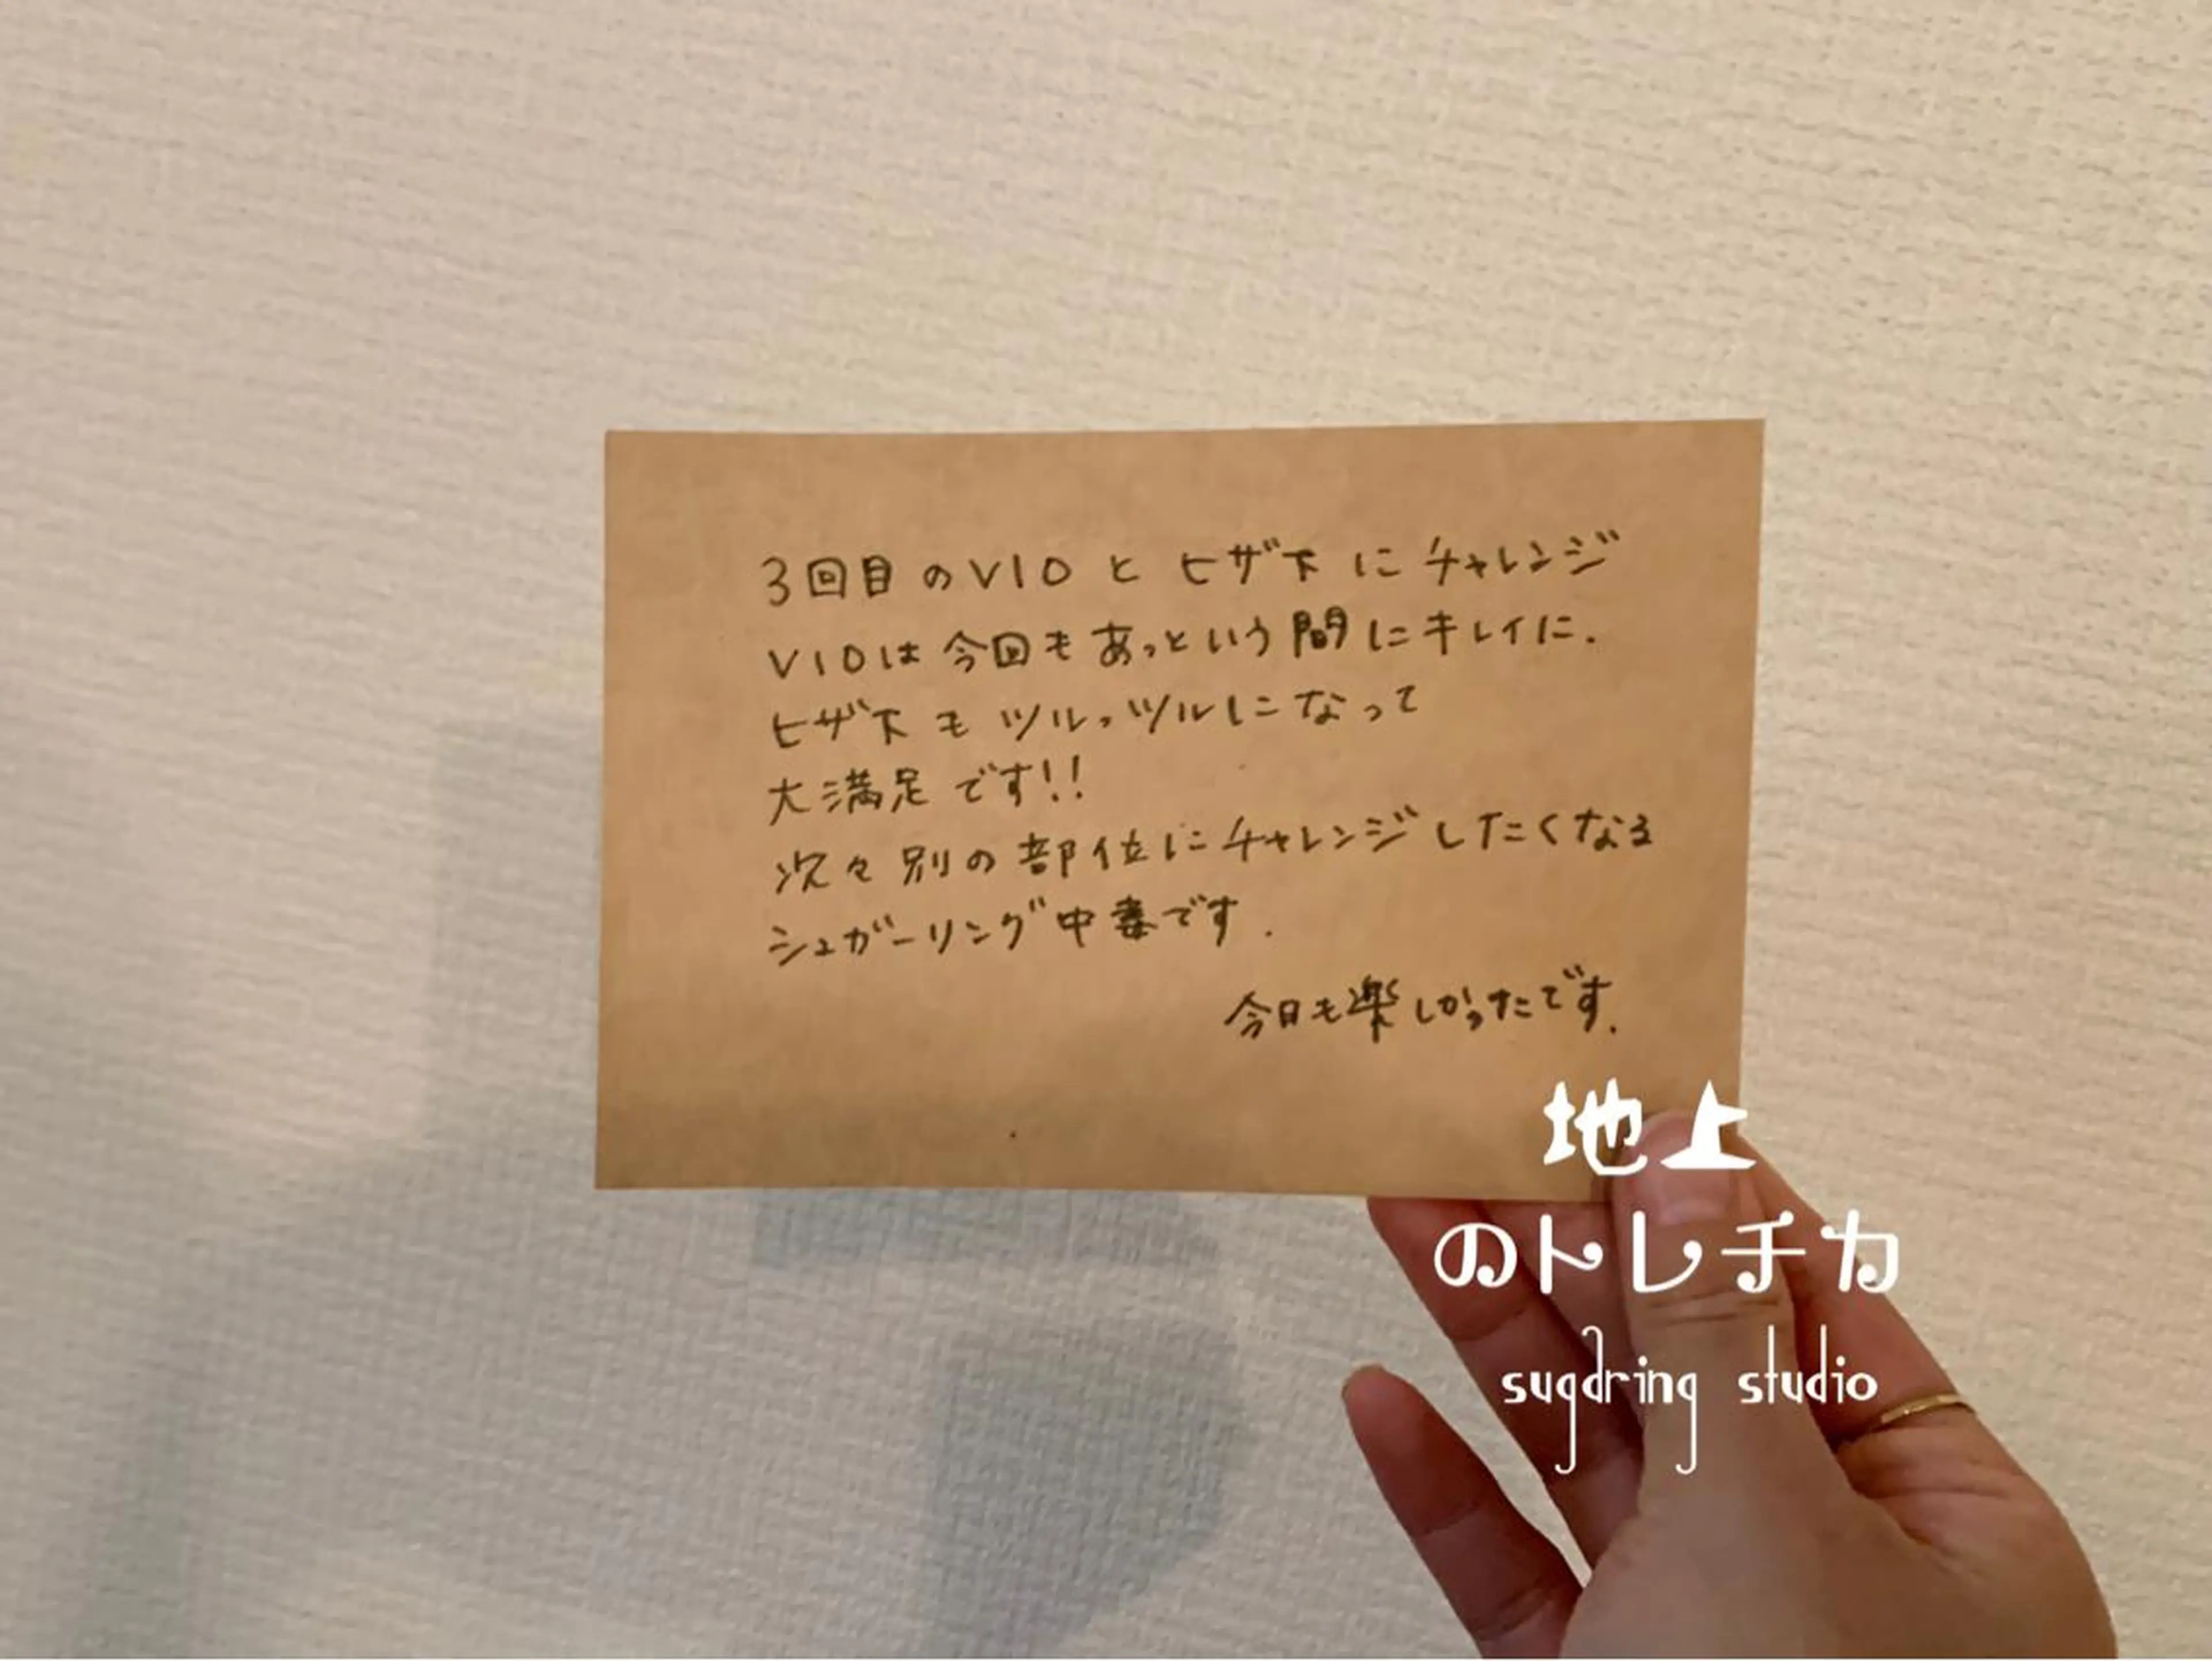 3回目のVIOとヒザ下にチャレンジ
VIOは今回もあっという間にキレイに.
ヒザ下もツルッツルになって
大満足です!!
次々別の部位にチャレンジしたくなる
シュガーリング中毒です.
今日も楽しかったです.
地上
のトレチカ
sugaring studio